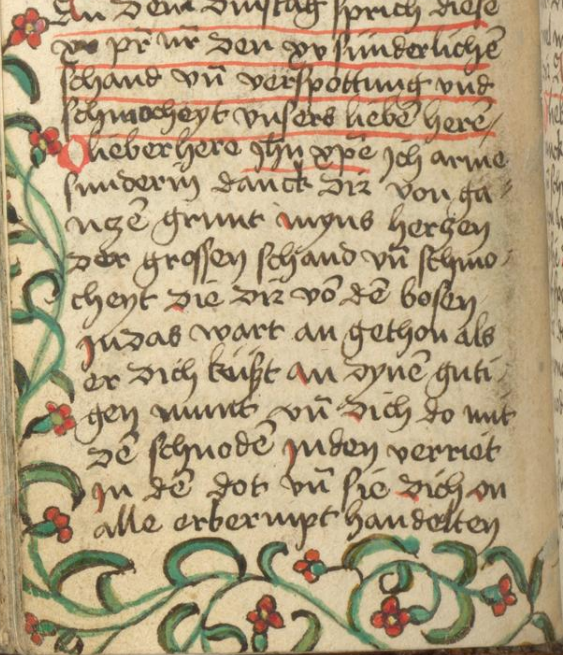 An dem dinstag sprich diese
xv pr nr den xv sunderlichē
schand vn̄ verspottung vnd
schmocheyt vnsers liebē herē
O lieber here ihū xpē Ich arme
sunderin danck dir von ga
nczē grunt myns herczen
der grossen schand vn̄ schmo
cheyt die dir vō dē bosen
Judas wart an gethon als
er dich kust an dynē guti
gen munt vn̄ dich do mit
dē schnodē Juden verriet
In dē dot vn̄ sie dich on
alle erbermpt handelten